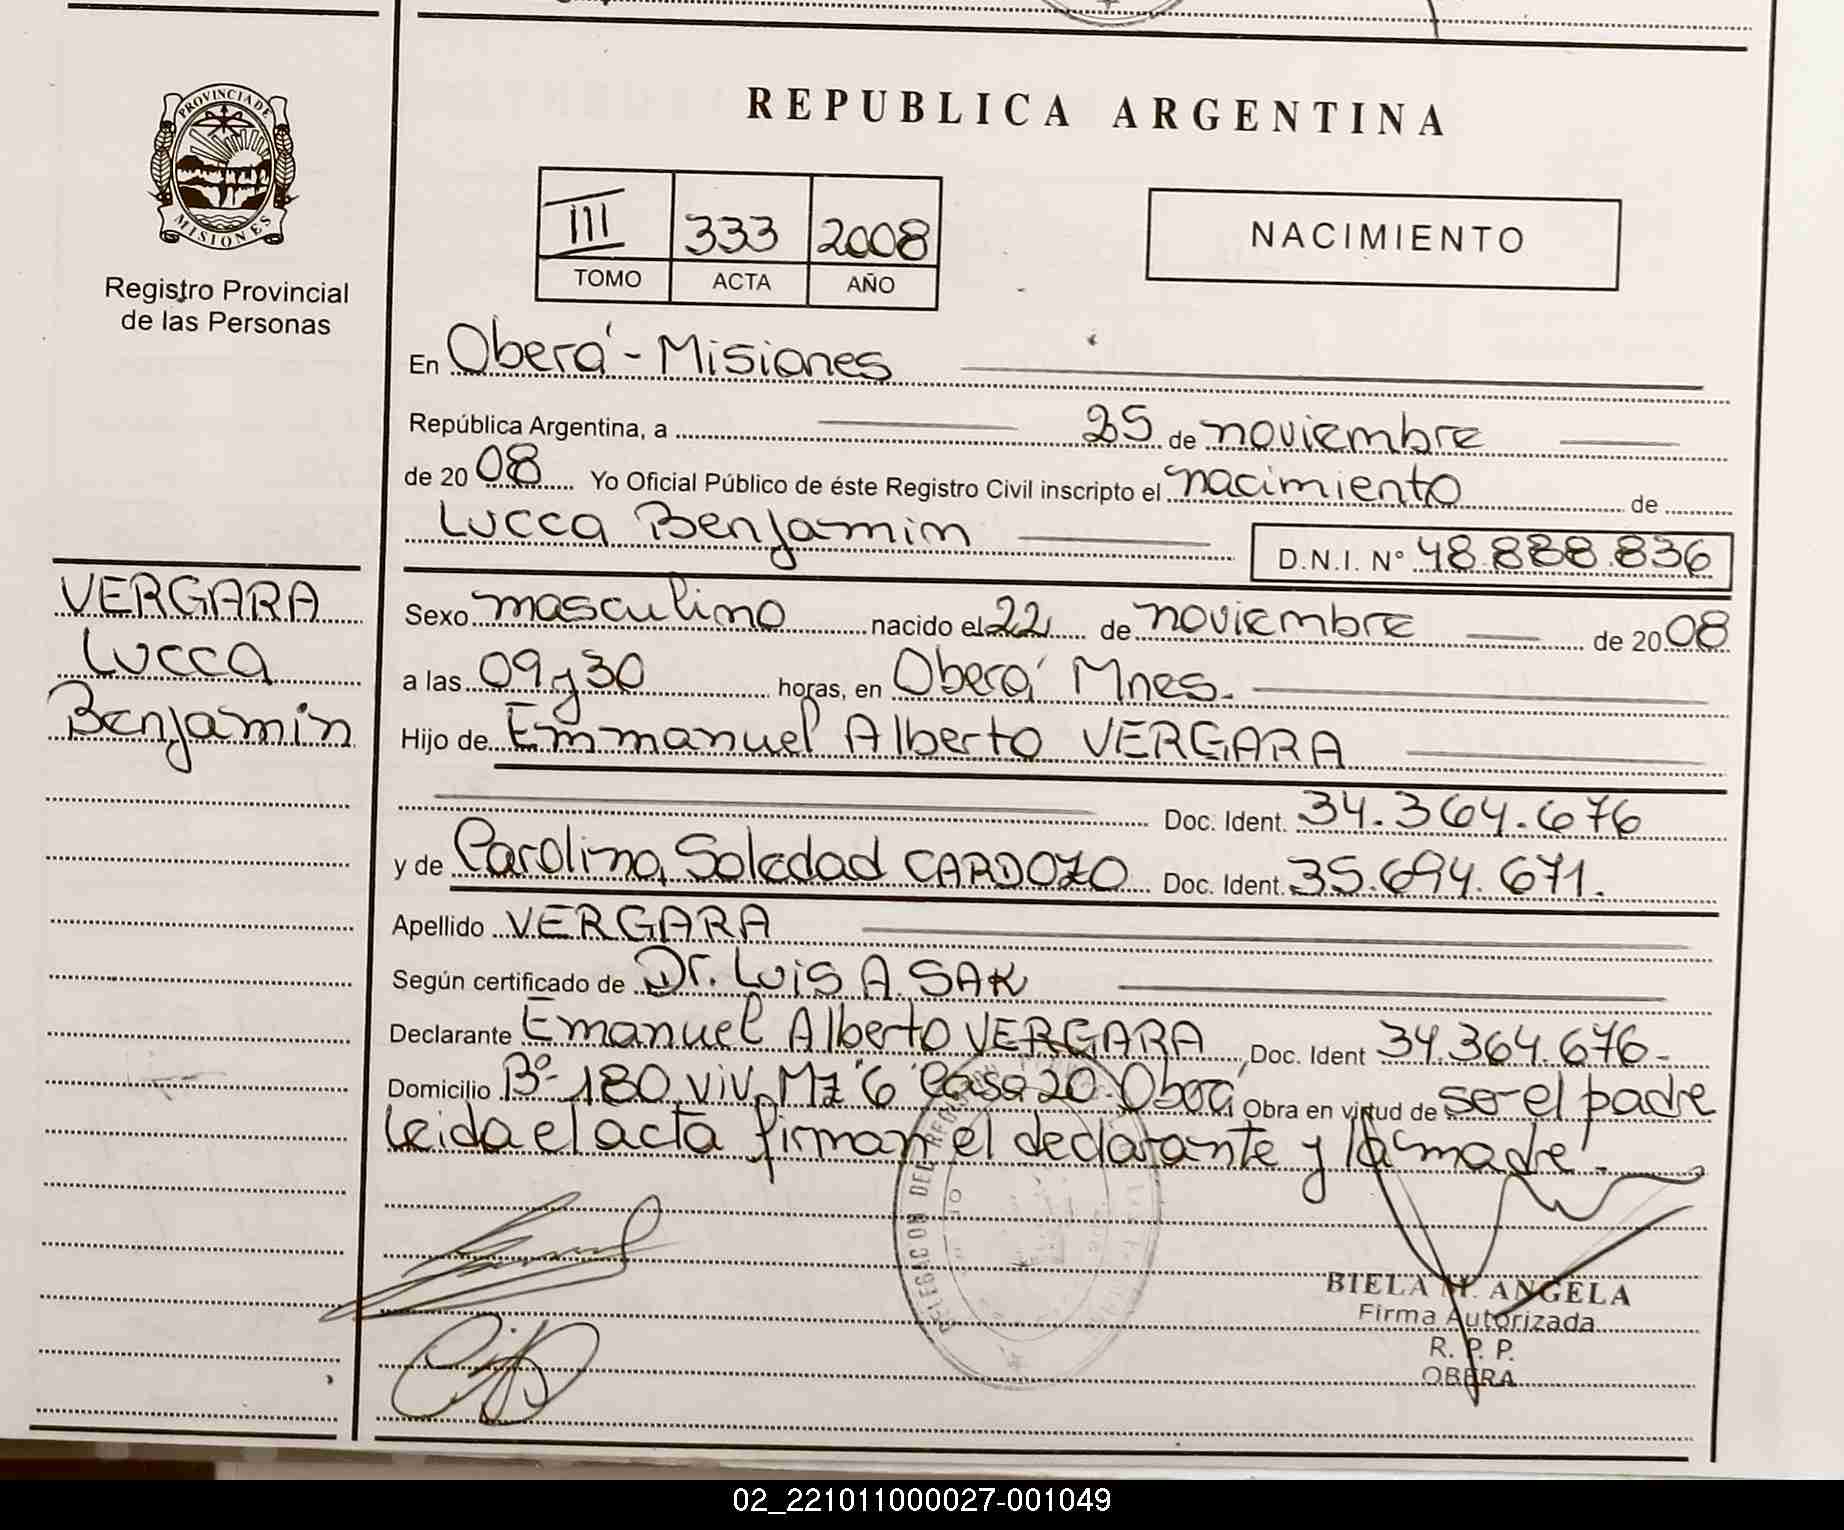 PROVINCIA DE
MISIONES
Registro Provincial
de las Personas
VERGARA
Lucca
Benjamin
REPUBLICA ARGENTINA
III 333 2008
TOMO ACTA AÑO
NACIMIENTO
En Oberá - Misiones
República Argentina, a 25 de noviembre
de 2008 Yo Oficial Público de éste Registro Civil inscripto el nacimiento de
Lucca Benjamin D.N.I. N° 48.888.836
Sexo masculino nacido el 22 de noviembre de 2008
a las 09 y 30 horas, en Oberá Mnes.
Hijo de Emmanuel Alberto VERGARA
Doc. Ident. 34.364.676
y de Carolina Soledad CARDOZO Doc. Ident. 35.694.671.
Apellido VERGARA
Según certificado de Dr. Luis A. SAK
Declarante Emanuel Alberto VERGARA Doc. Ident 34.364.676-
Domicilio Bº- 180 viv. Mz "6" Casa 20- Oberá Obra en virtud de ser el padre
Leida el acta firman el declarante y la madre.-
DELEGACION DEL
BIELA M. ANGELA
Firma Autorizada
R. P. P.
OBERA
02_221011000027-001049